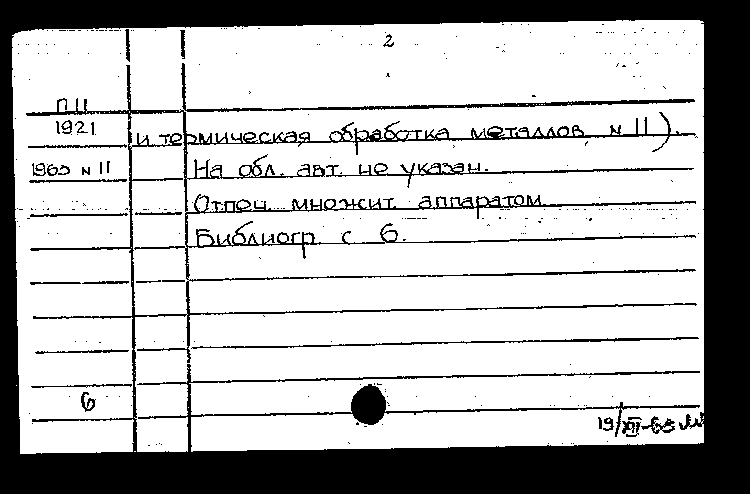 2
П 11
1921
и термическая обработка металлов, N 11).
1963 N 11
На обл. авт. не указан.
Отпеч. множит. аппаратом
Библиогр. с 6.
6
19/XII-63